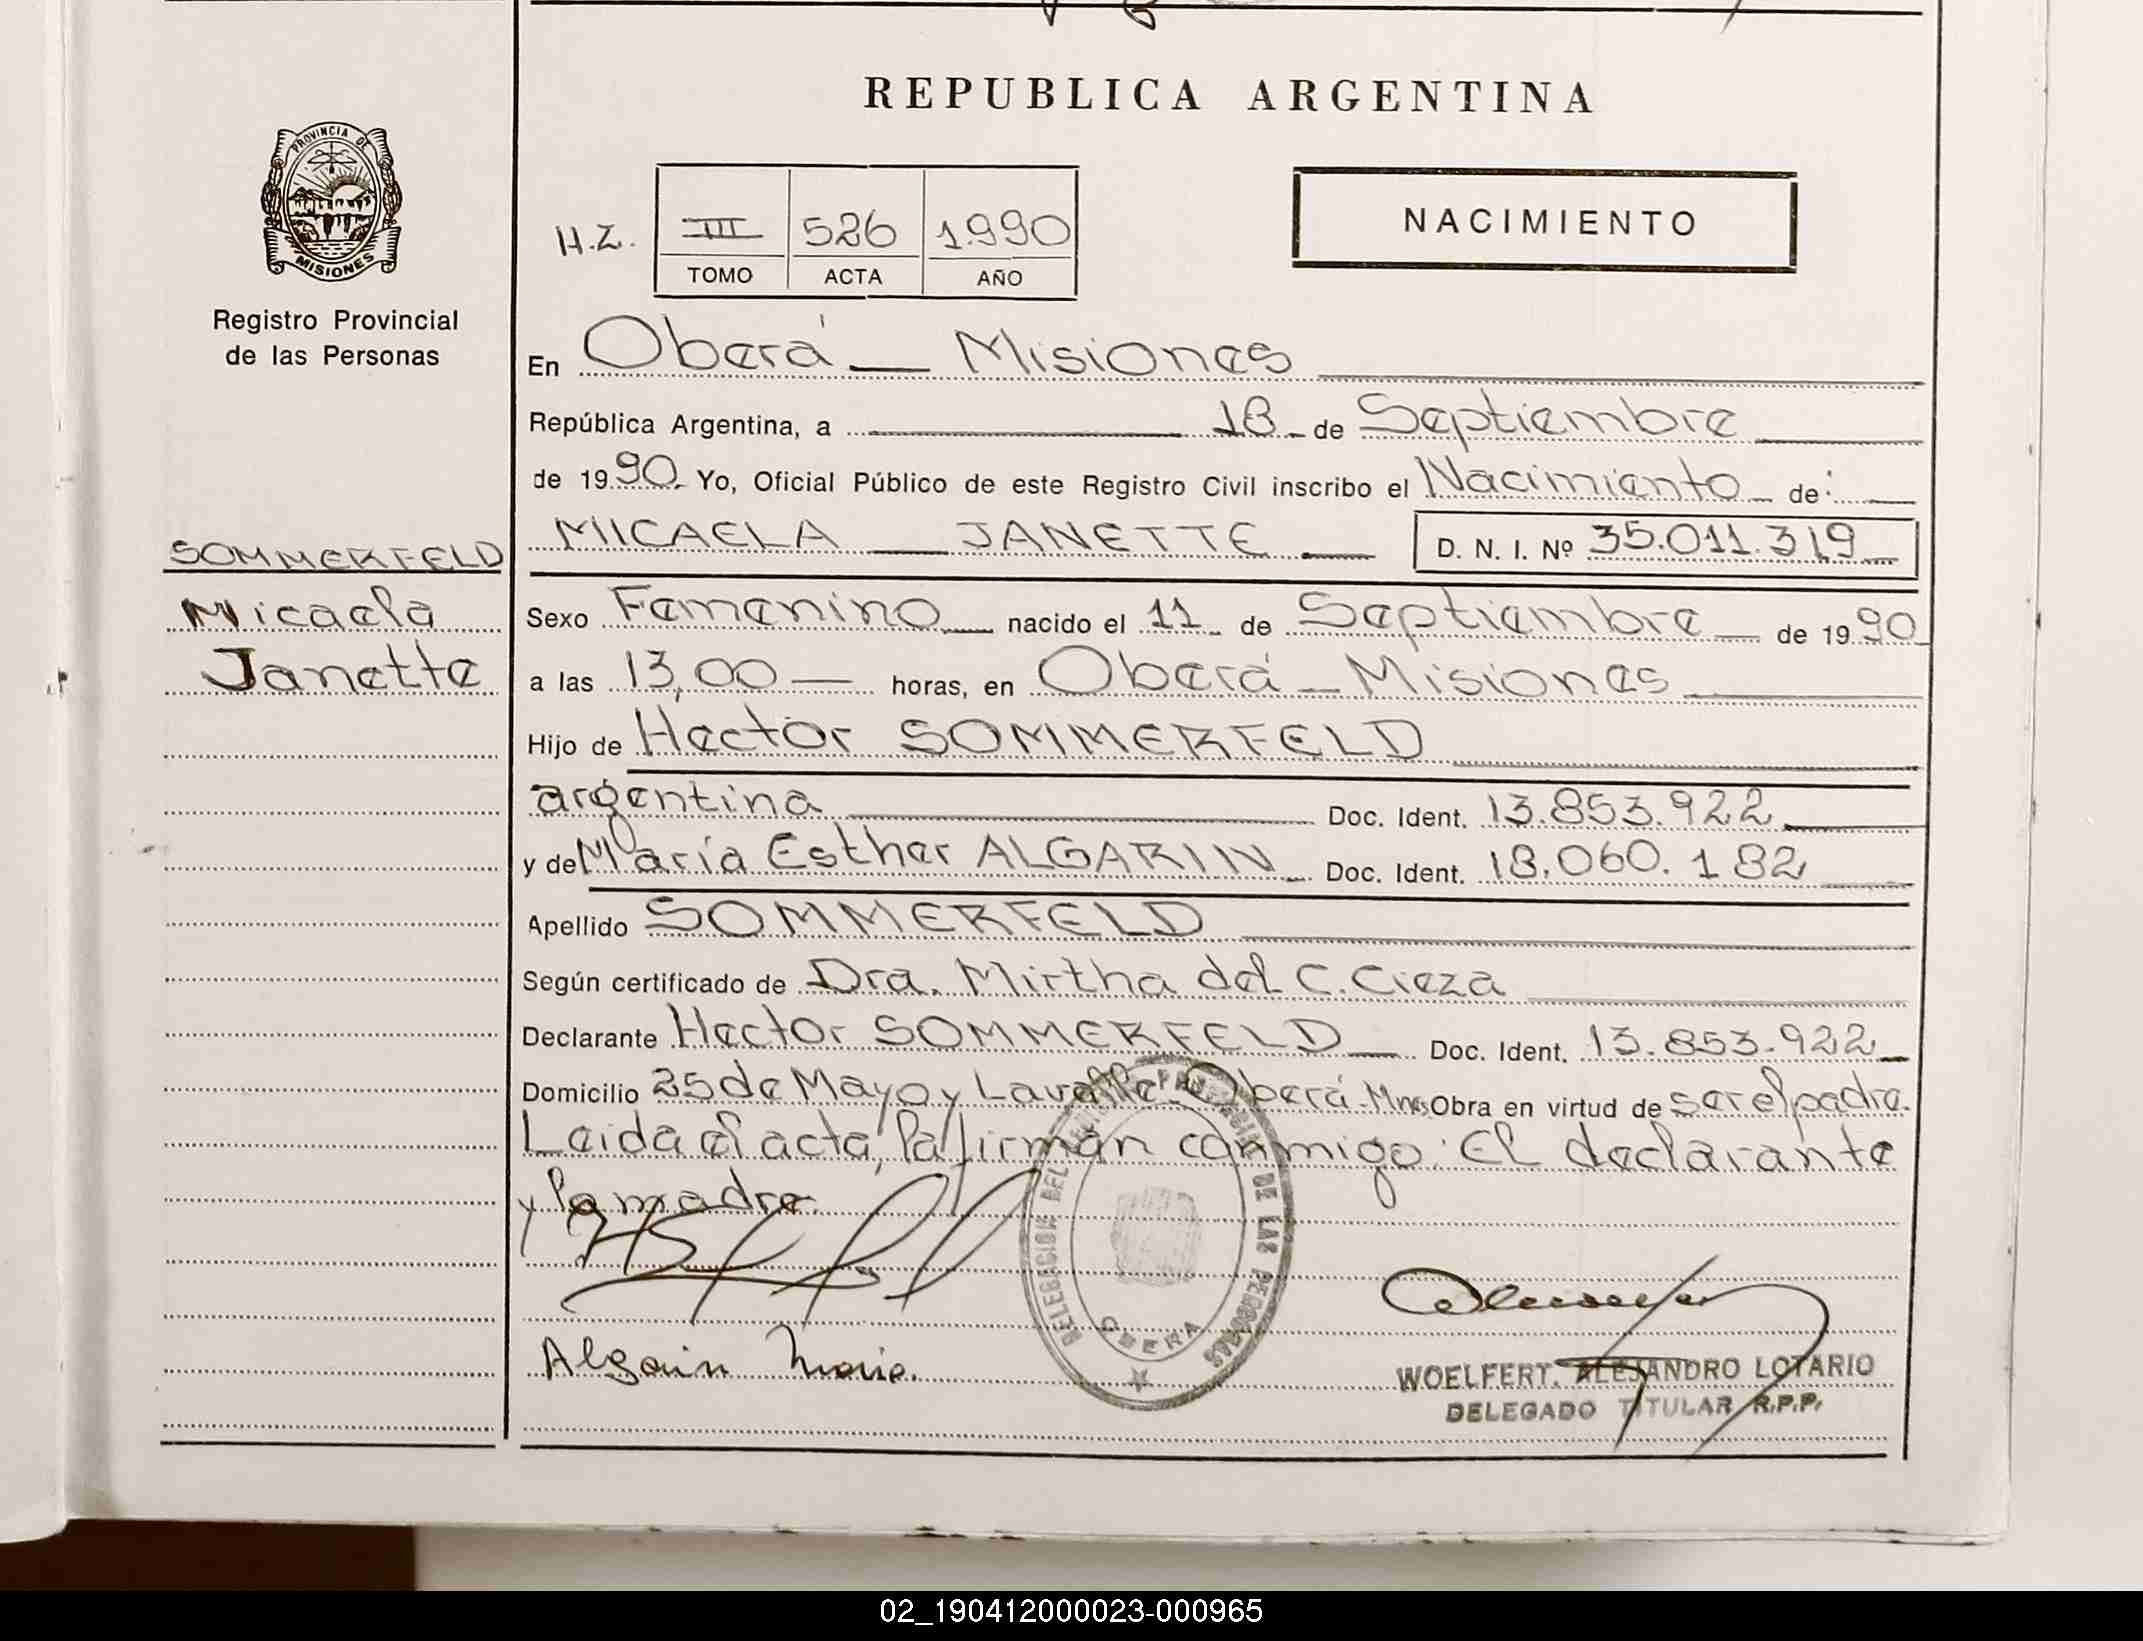 REPUBLICA ARGENTINA
PROVINCIA DE
MISIONES
Registro Provincial
de las Personas
H.Z.
III 526 1990
TOMO ACTA AÑO
NACIMIENTO
En Oberá — Misiones
República Argentina, a 18 de Septiembre
de 1990 Yo, Oficial Público de este Registro Civil inscribo el Nacimiento de:
SOMMERFELD
Micaela
Janette
MICAELA — JANETTE — D. N. I. Nº 35.011.319
Sexo Femenino nacido el 11 de Septiembre de 1990
a las 13,00 — horas, en Oberá — Misiones
Hijo de Hector SOMMERFELD
argentina Doc. Ident. 13.853.922
y de María Esther ALGARIN Doc. Ident. 18.060.182
Apellido SOMMERFELD
Según certificado de Dra. Mirtha del C. Cieza
Declarante Hector SOMMERFELD — Doc. Ident. 13.853.922
Domicilio 25 de Mayo y Lavalle - Oberá - Mnes Obra en virtud de ser el padre.
Leida el acta, la firman conmigo: El declarante
y la madre.
DELEGACION DEL REGISTRO PROVINCIAL DE LAS PERSONAS
OBERA
Algarin Maria.
WOELFERT, ALEJANDRO LOTARIO
DELEGADO TITULAR R.P.P.
02_190412000023-000965